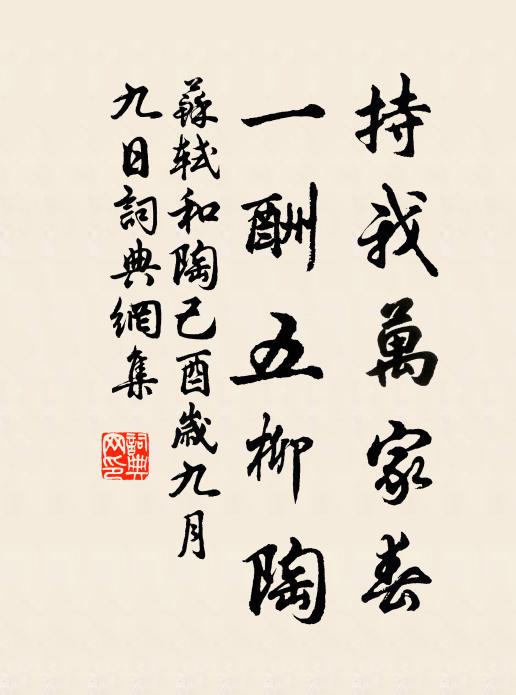 持我萬家春
一酬五柳陶
蘇軾和陶己酉歲九月
九日詞典網集
詞典网印